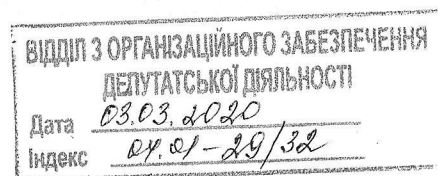 ВІДДІЛ З ОРГАНІЗАЦІЙНОГО ЗАБЕЗПЕЧЕННЯ
ДЕПУТАТСЬКОЇ ДІЯЛЬНОСТІ
Дата 03.03.2020
Індекс 04.01-29/32